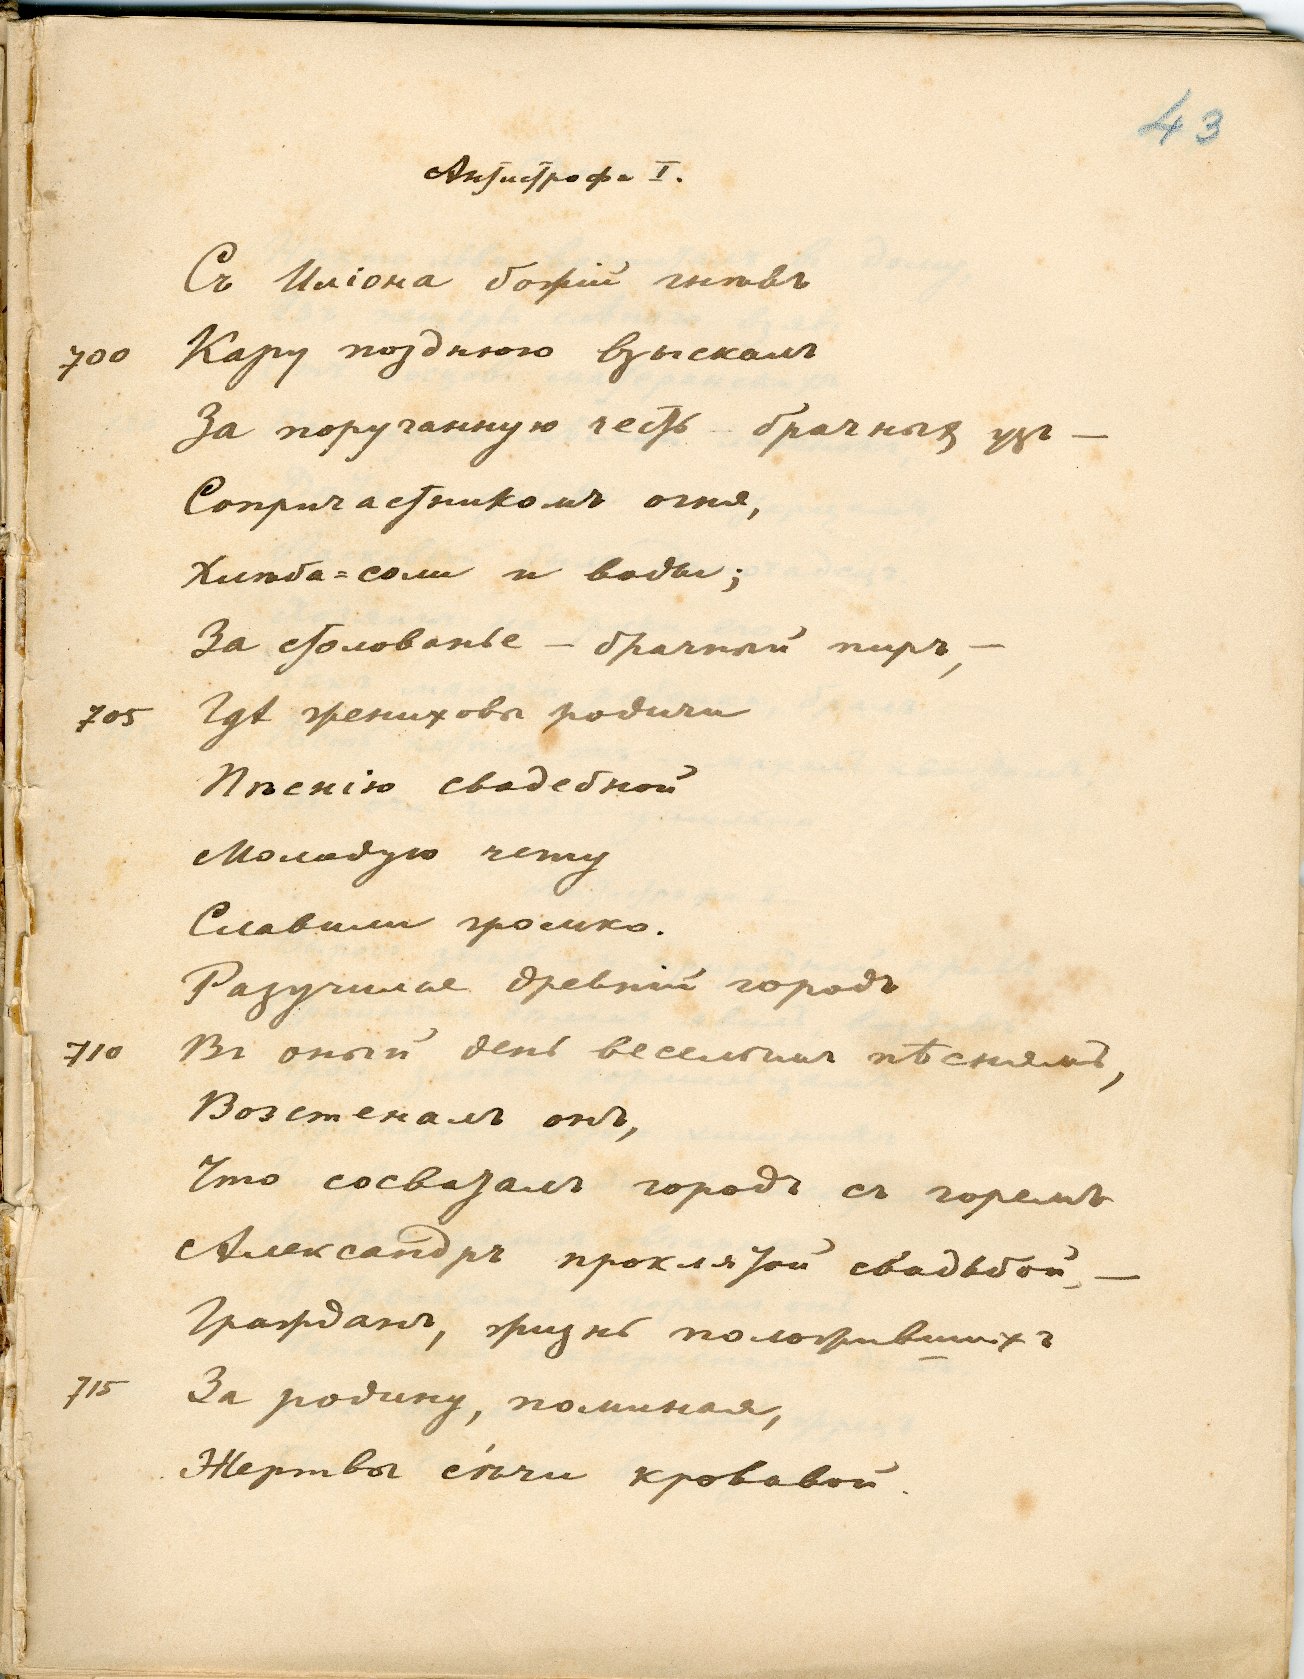 43
Антистрофа I.
Съ Иліона божій гнѣвъ
700 Кару позднюю взыскалъ
За поруганную честь брачныхъ узъ —
Сопричастникомъ огня,
Хлѣба=соли и воды;
За столованье — брачный пиръ, —
705 Гдѣ жениховы родичи
Пѣснію свадебной
Молодую чету
Славили громко.
Разучился древній городъ
710 Въ оный день веселымъ пѣснямъ,
Возстеналъ онъ,
Что сосваталъ городъ съ горемъ
Александръ проклятой свадьбой, —
Гражданъ, жизнь положившихъ
715 За родину, поминая,
Жертвы сѣчи кровавой.